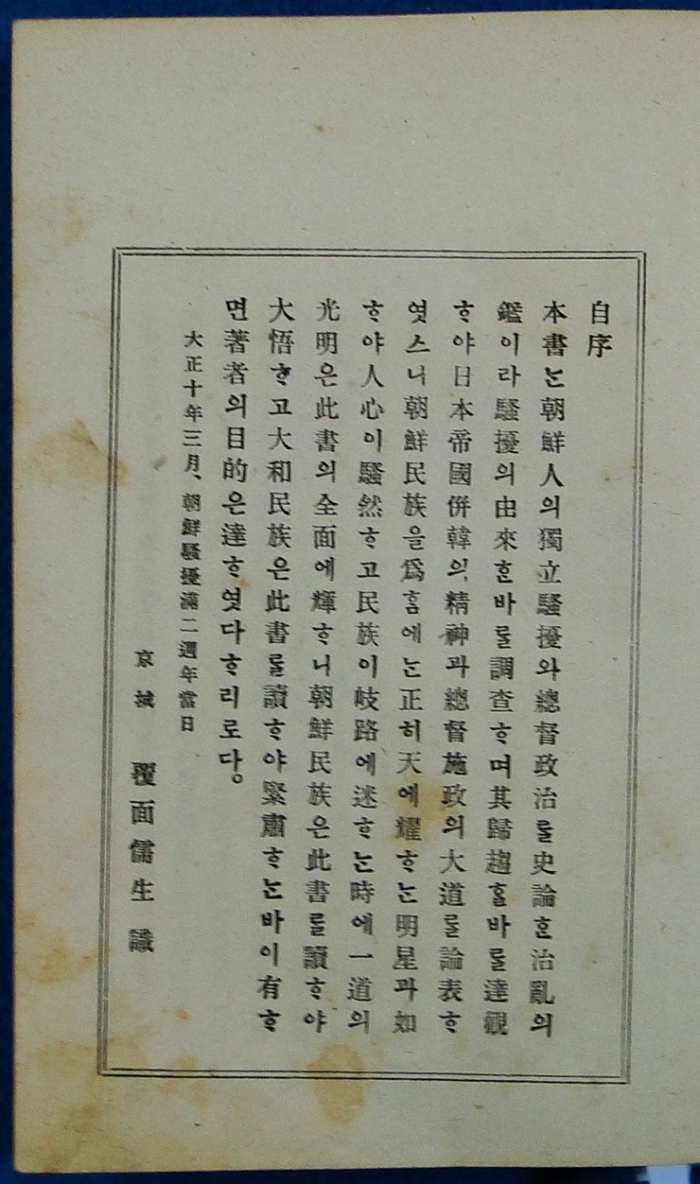 自序
本書ᄂᆞᆫ朝鮮人의獨立騷擾와總督政治ᄅᆞᆯ史論ᄒᆞᆫ治亂의
鑑이라騷擾의由來ᄒᆞᆫ바ᄅᆞᆯ調査ᄒᆞ며其歸趨ᄒᆞᆯ바ᄅᆞᆯ達觀
ᄒᆞ야日本帝國併韓의精神과總督施政의大道ᄅᆞᆯ論表ᄒᆞ
엿스니朝鮮民族을爲ᄒᆞᆷ에ᄂᆞᆫ正히天에耀ᄒᆞᄂᆞᆫ明星과如
ᄒᆞ야人心이騷然ᄒᆞ고民族이岐路에迷ᄒᆞᄂᆞᆫ時에一道의
光明은此書의全面에輝ᄒᆞ니朝鮮民族은此書ᄅᆞᆯ讀ᄒᆞ야
大悟ᄒᆞ고大和民族은此書ᄅᆞᆯ讀ᄒᆞ야緊肅ᄒᆞᄂᆞᆫ바이有ᄒᆞ
면著者의目的은達ᄒᆞ엿다ᄒᆞ리로다。
大正十年三月、朝鮮騷擾滿二週年當日
京城 覆面儒生 識